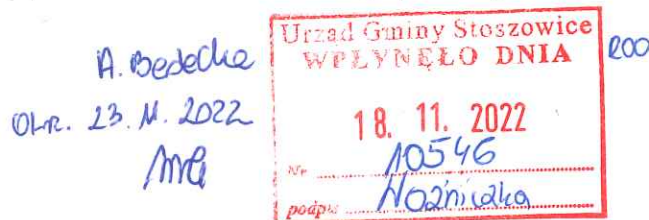 A. Bedecka
Otrz. 23. 11. 2022
Urząd Gminy Stoszowice
WPŁYNĘŁO DNIA
ROO
18. 11. 2022
Nr 10546
podpis Woźniczka